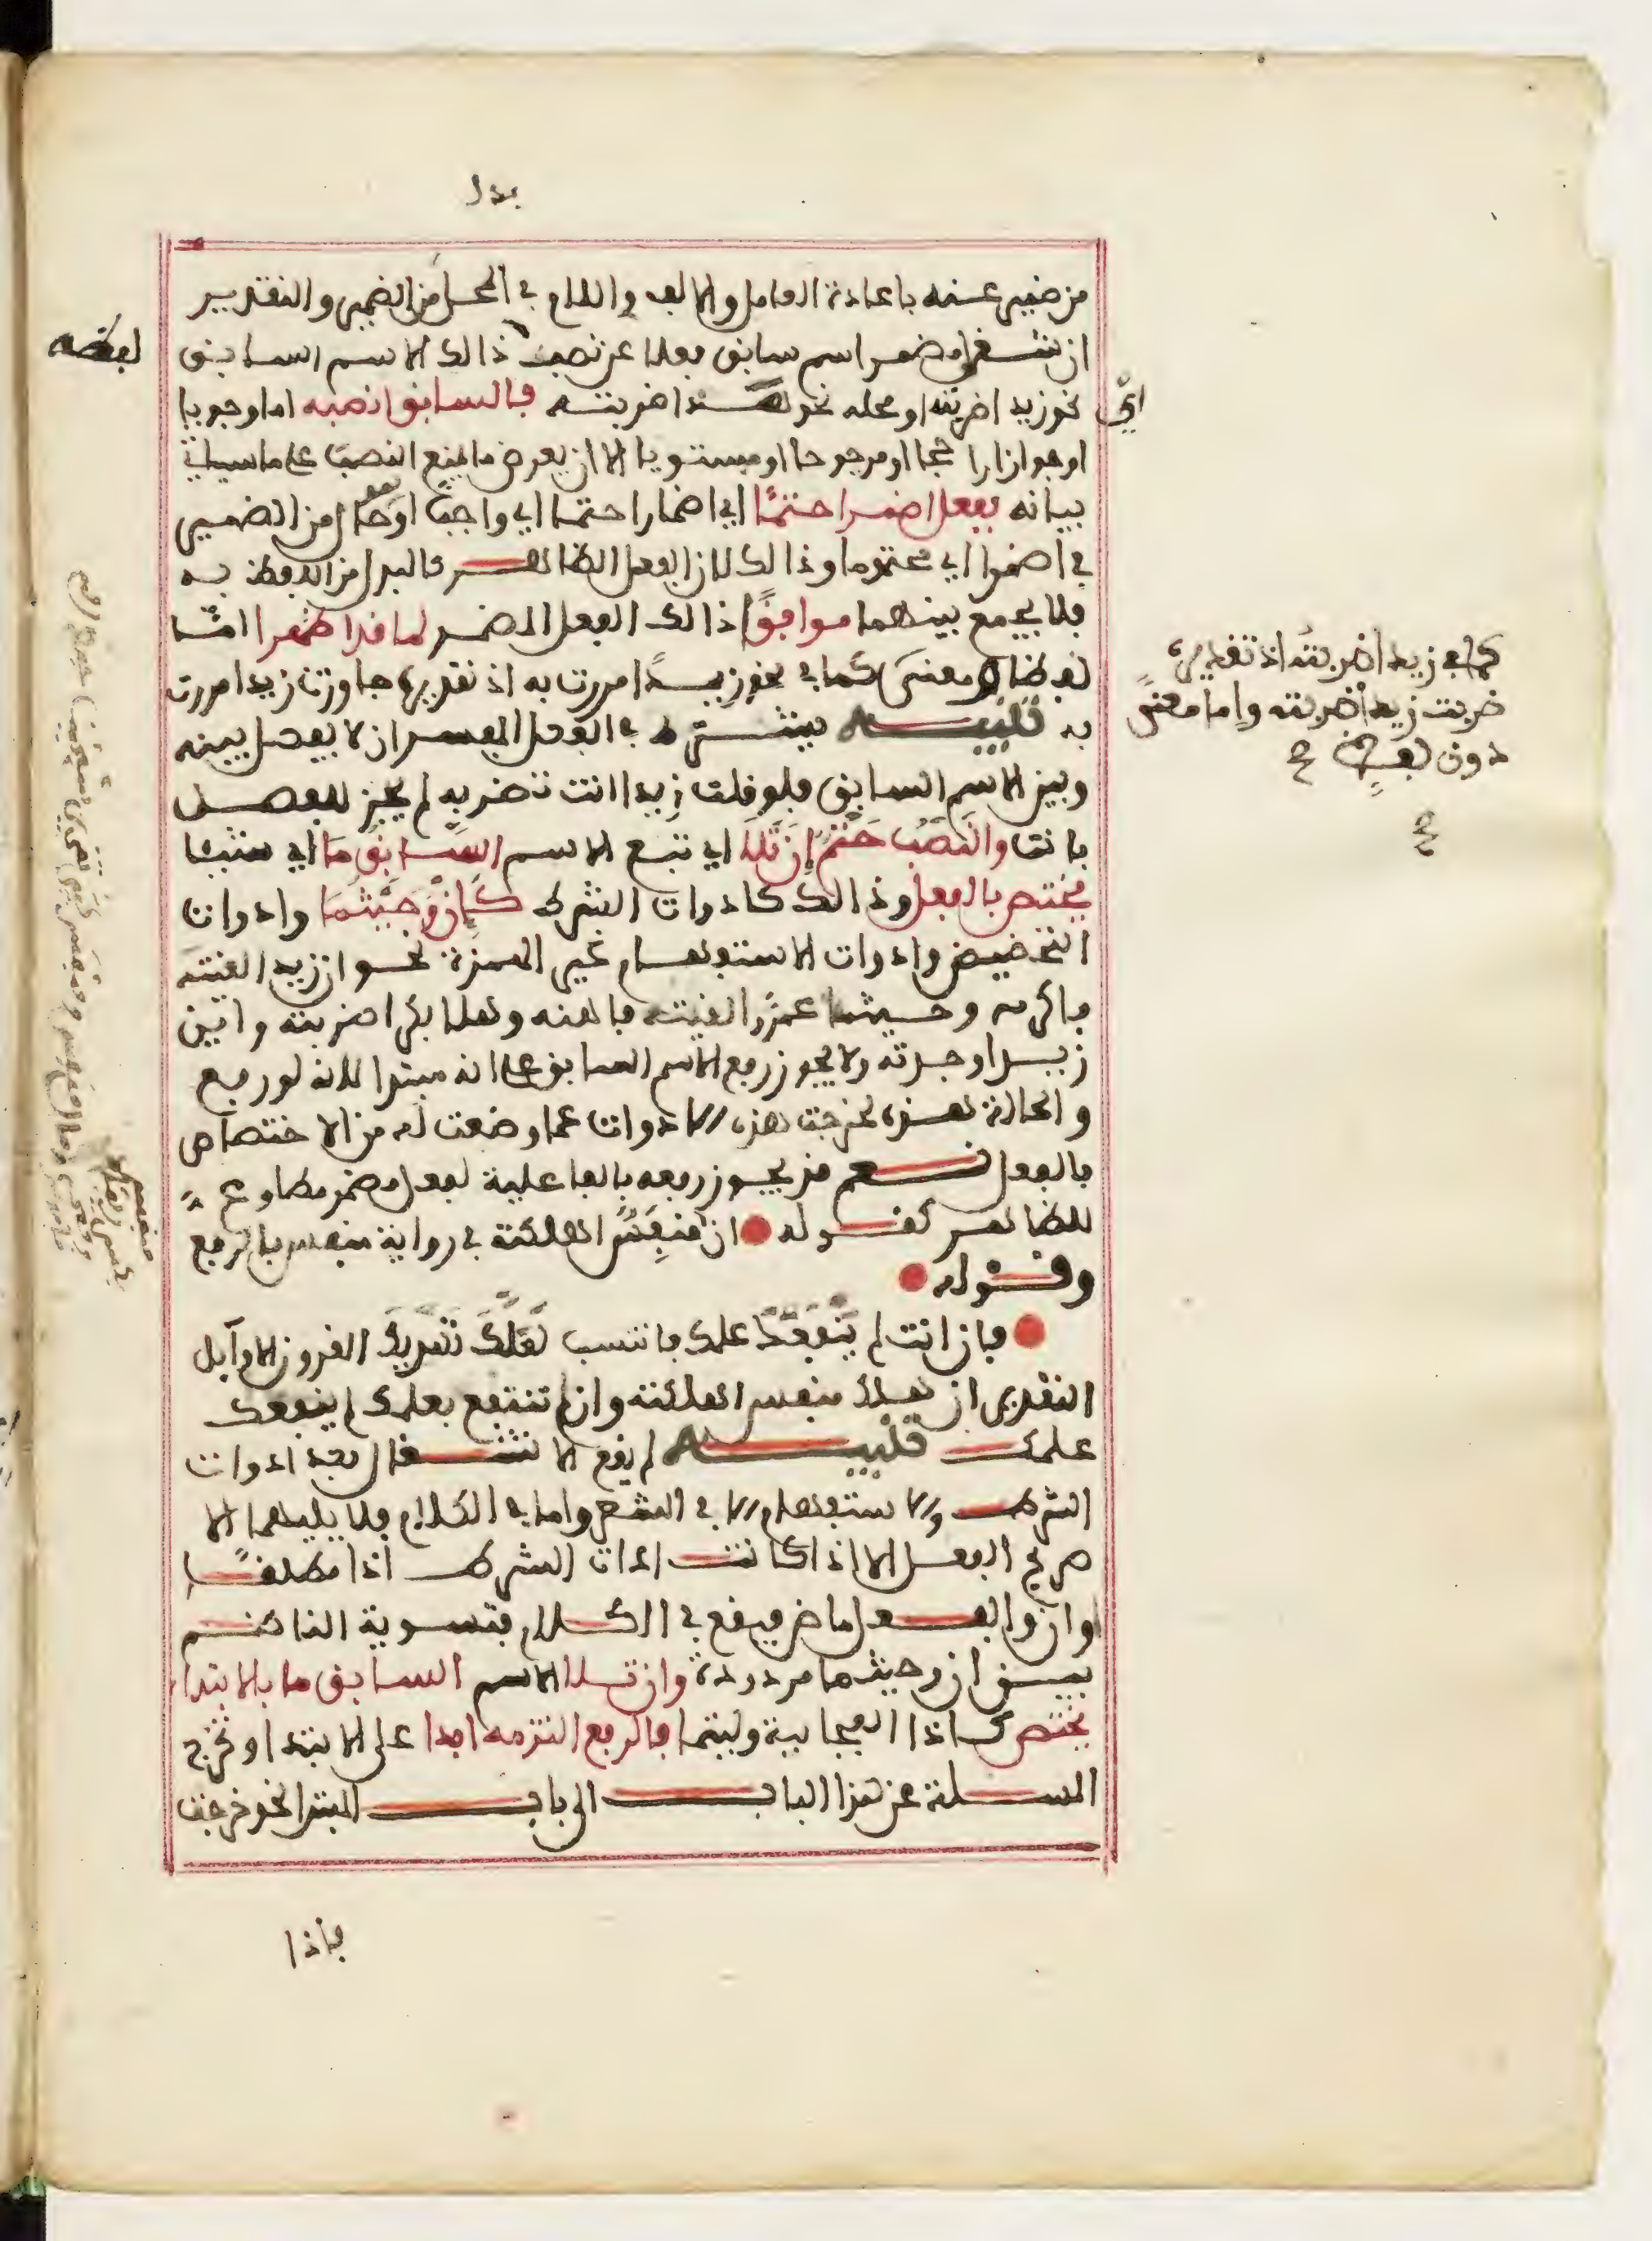 بدل
من ضمير عنه باعادة العامل والالف واللام في المحل من الضمير والتقدير
ان شغل مضمر اسم سابق فعلا عن نصب ذالك الاسم السابق
لفظه
نحو زيدا ضربته او محله نحو هذا ضربته فالسابق انصبه اما وجوبا
اي
او جوازا راجحا او مرجوحا او مستويا الا ان يعرض ما يمنع النصب على ما سياتي
بيانه بفعل اضمرا حتما اي اضمارا حتما اي واجبا او حال من الضمير
في اضمرا اي محتوما وذالك لان الفعل الظاهر كالبدل من اللفظ به
فلا يجمع بينهما موافق ذالك الفعل المضمر لما قد اظهرا اما
لفظا ومعنى كما في نحو زيدا مررت به اذ تقديره جاوزت زيدا مررت
كما في زيدا ضربته اذ تقديره
ضربت زيدا ضربته واما معنى
دون لفظ صح
صح
به تنبيه يشترط في الفعل المفسر ان لا يفصل بينه
وبين الاسم السابق فلو قلت زيدا انت تضربه لم يجز للفصل
بانت والنصب حتم ان تلا اي تبع الاسم السابق ما اي شيئا
يختص بالفعل وذالك كادوات الشرط كان وحيثما وادوات
التخضيض وادوات الاستفهام غير الهمزة نحو ان زيدا لقيته
فاكرمه وحيثما عمرا لقيته فاهنه وهلا بكرا ضربته واين
زيدا وجدته ولا يجوز رفع الاسم السابق على انه مبتدا لانه لو رفع
والحالة هذه لخرجت هذه الادوات عما وضعت له من الاختصاص
بالفعل نعم قد يجوز رفعه بالفاعلية لفعل مضمر مطاوع
للظاهر كقوله ان منفس اهلكته في رواية منفس بالرفع
وقوله
فان انت لم ينفعك علمك فانتسب لعلك تهديك القرون الاوائل
التقدير ان هلك منفس اهلكته وان لم تنتفع بعلمك لم ينفعك
علمك تنبيه لم يقع الاشتغال بعد ادوات
الشرط والاستفهام الا في الشعر واما في الكلام فلا يليهما الا
صريح الفعل الا اذا كانت ادات الشرط اذا مطلقا
وان والفعل ماض فيقع في الكلام فتسوية الناظم
بين ان وحيثما مردودة وان تلا الاسم السابق ما بالابتدا
يختص كاذا الفجايية وليتما فالرفع التزمه ابدا على الابتدا وتخرج
المسلة عن هذا الباب الى باب المبتدا نحو خرجت
فاذا